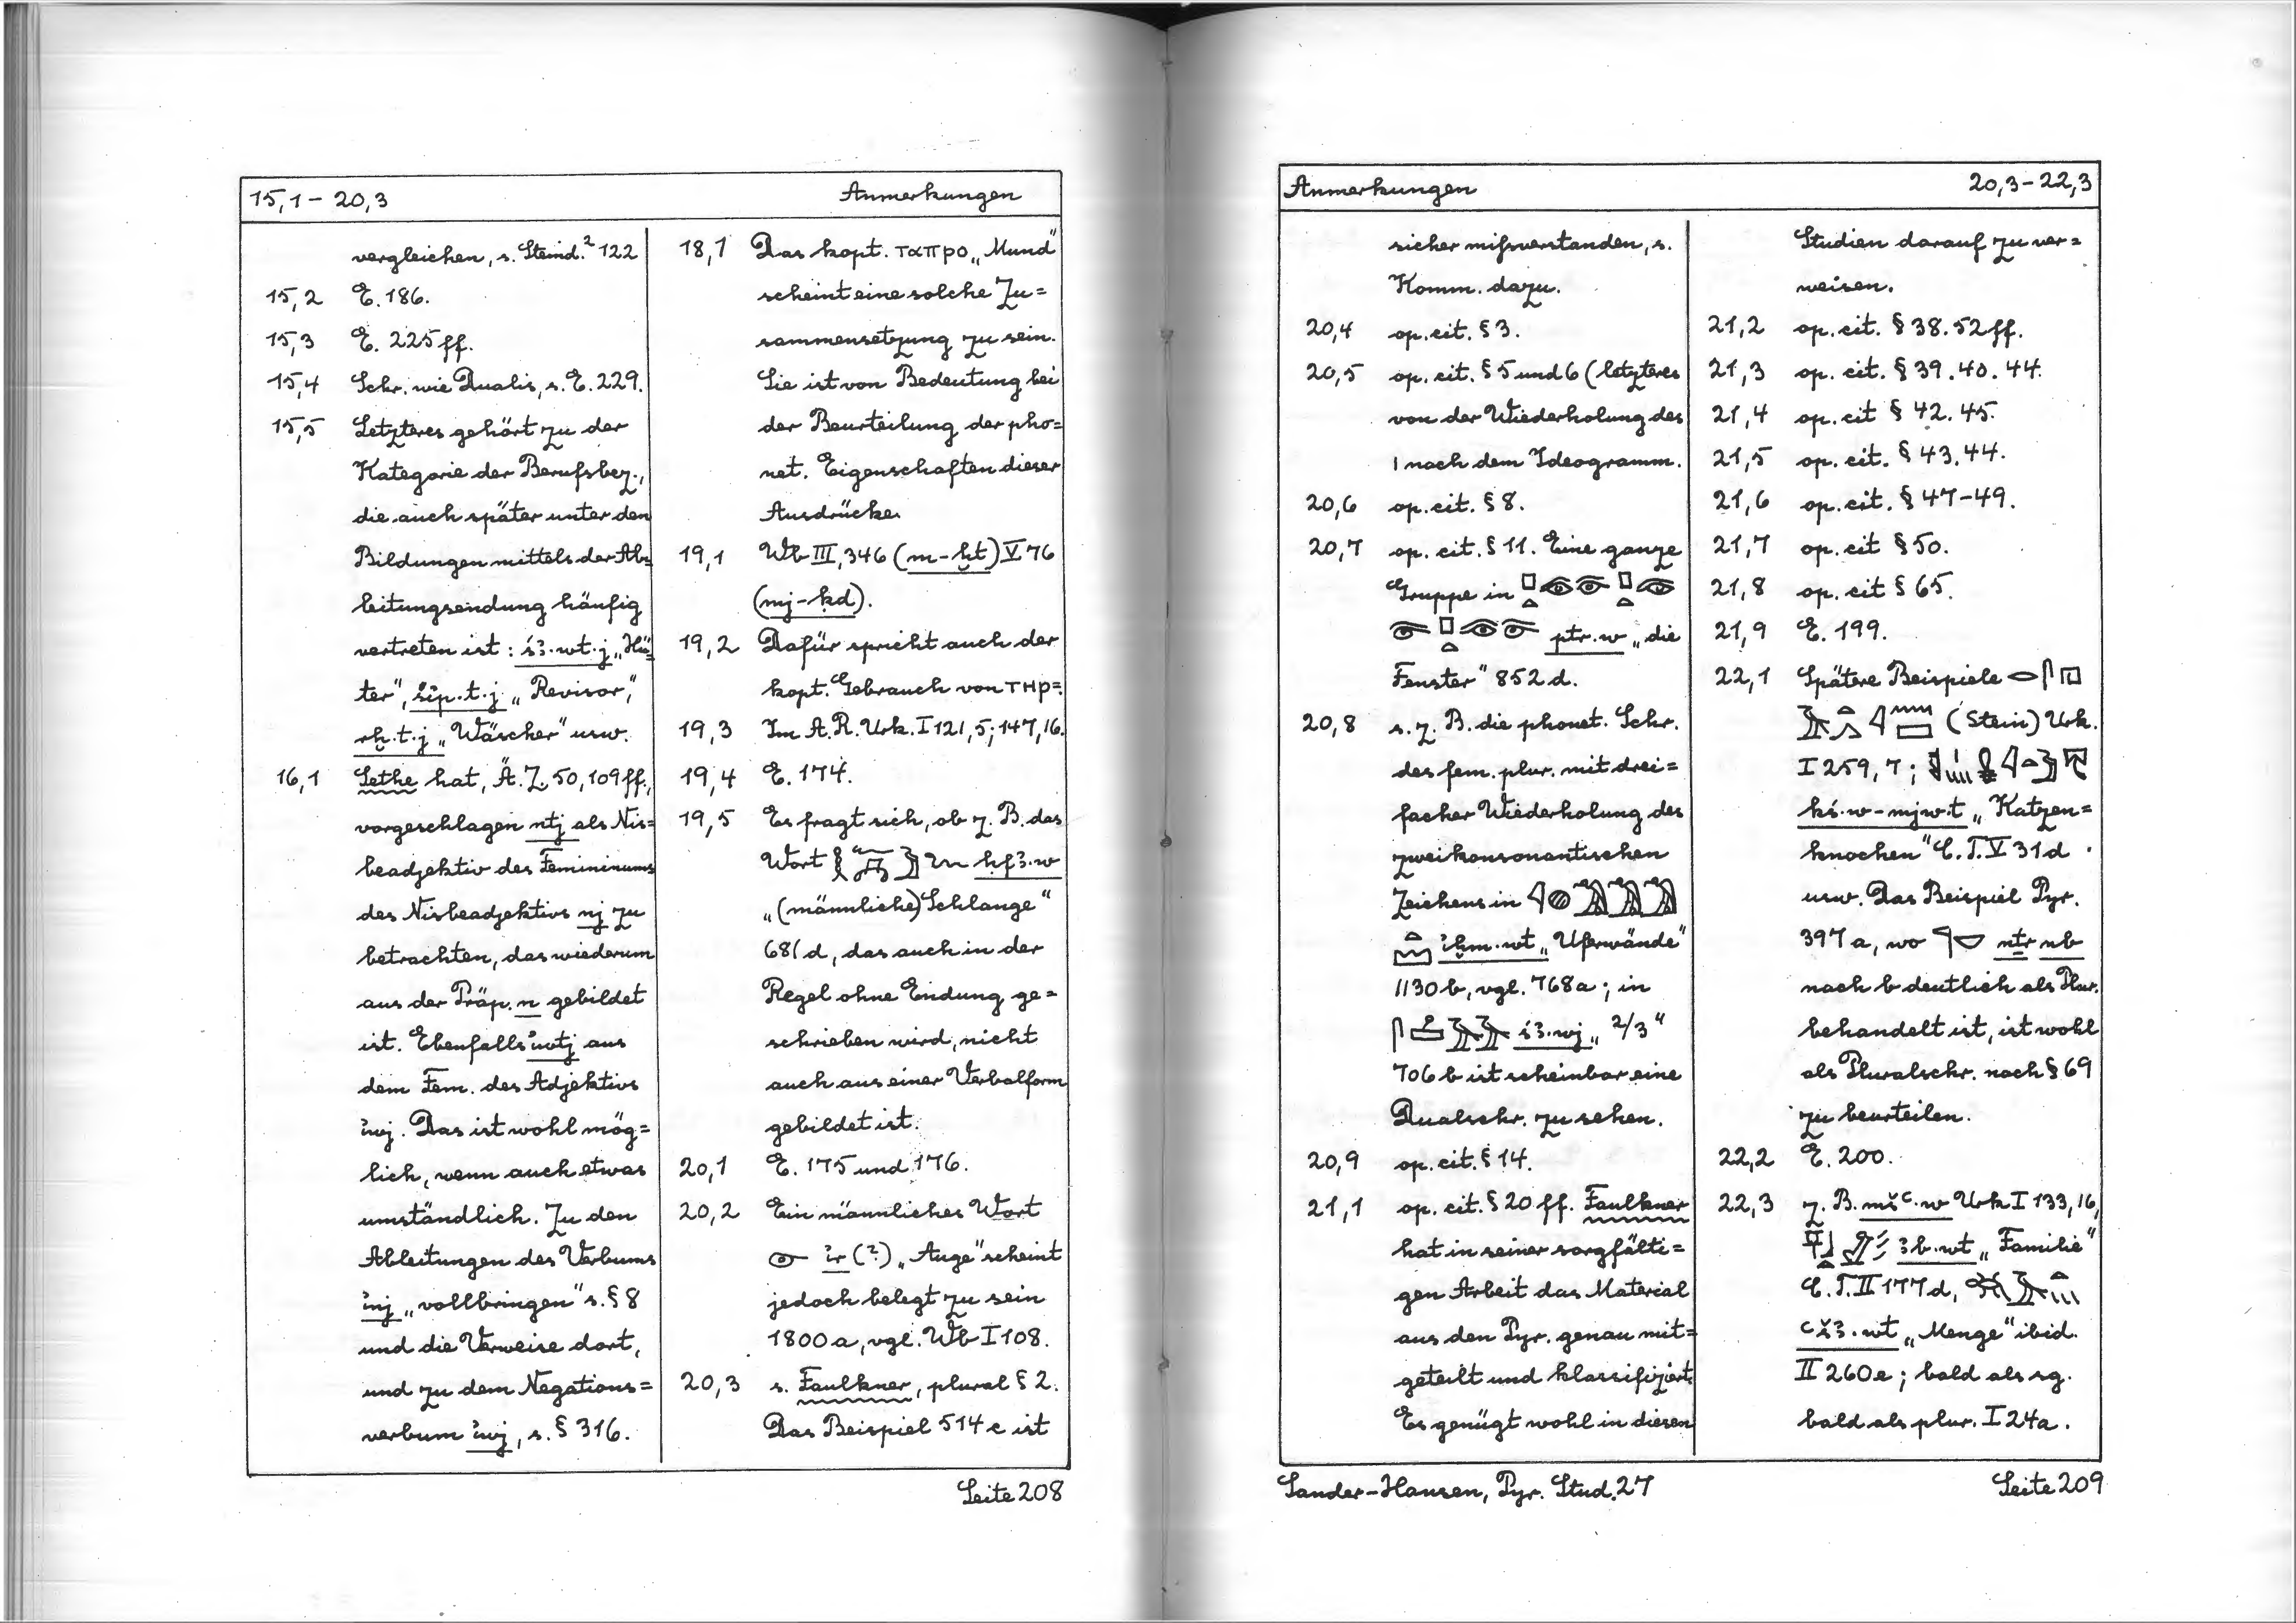 15,1 - 20,3 Anmerkungen
vergleichen, s. Steind.² 122
15,2 E. 186.
15,3 E. 225ff.
15,4 Schr. wie Dualis, s. E. 229.
15,5 Letzteres gehört zu der
Kategorie der Berufsbez.,
die auch später unter den
Bildungen mittels der Ab=
leitungsendung häufig
vertreten ist: ś3.wt.j „Hü=
ter“, śip.t.j „Revisor“,
rḫ.t.j „Wäscher“ usw.
16,1 Sethe hat, Ä.Z. 50, 109ff.,
vorgeschlagen ntj als Nis=
beadjektiv des Femininums
des Nisbeadjektivs nj zu
betrachten, das wiederum
aus der Präp. n gebildet
ist. Ebenfalls iwtj aus
dem Fem. des Adjektivs
iwj. Das ist wohl mög=
lich, wenn auch etwas
umständlich. Zu den
Ableitungen des Verbums
inj „vollbringen“ s. § 8
und die Verweise dort,
und zu dem Negations=
verbum iwj, s. § 316.
18,1 Das kopt. ταπρο „Mund“
scheint eine solche Zu=
sammensetzung zu sein.
Sie ist von Bedeutung bei
der Beurteilung der pho=
net. Eigenschaften dieser
Ausdrücke.
19,1 Wb III, 346 (m-ḫt) V 76
(mj-ḳd).
19,2 Dafür spricht auch der
kopt. Gebrauch von ΤΗΡ=.
19,3 Im A.R. Urk. I 121,5; 147,16.
19,4 E. 174.
19,5 Es fragt sich, ob z. B. das
Wort ḥf3.w
„(männliche) Schlange“
681d, das auch in der
Regel ohne Endung ge=
schrieben wird, nicht
auch aus einer Verbalform
gebildet ist.
20,1 E. 175 und 176.
20,2 Ein männliches Wort
ir (?) „Auge“ scheint
jedoch belegt zu sein
1800a, vgl. Wb I 108.
20,3 s. Faulkner, plural § 2.
Das Beispiel 514c ist
Seite 208
Anmerkungen 20,3-22,3
sicher mißverstanden, s.
Komm. dazu.
20,4 op. cit. § 3.
20,5 op. cit. § 5 und 6 (letzteres
von der Wiederholung des
I nach dem Ideogramm.
20,6 op. cit. § 8.
20,7 op. cit. § 11. Eine ganze
Gruppe in
ptr.w „die
Fenster“ 852d.
20,8 s. z. B. die phonet. Schr.
des fem. plur. mit drei=
facher Wiederholung des
zweikonsonantischen
Zeichens in
iḫm.wt „Uferwände“
1130b, vgl. 768a; in
ś3.wj „2/3“
706b ist scheinbar eine
Dualschr. zu sehen.
20,9 op. cit. § 14.
21,1 op. cit. § 20ff. Faulkner
hat in seiner sorgfälti=
gen Arbeit das Material
aus den Pyr. genau mit=
geteilt und klassifiziert.
Es genügt wohl in diesen
Studien darauf zu ver=
weisen.
21,2 op. cit. § 38. 52ff.
21,3 op. cit. § 39. 40. 44.
21,4 op. cit § 42. 45.
21,5 op. cit. § 43. 44.
21,6 op. cit. § 47-49.
21,7 op. cit § 50.
21,8 op. cit § 65.
21,9 E. 199.
22,1 Spätere Beispiele
(Stein) Urk.
I 259,7;
ḳś.w-mjwt „Katzen=
knochen“ C.T. V 31d
usw. Das Beispiel Pyr.
397a, wo nṯr nb
nach b deutlich als Plur.
behandelt ist, ist wohl
als Pluralschr. nach § 69
zu beurteilen.
22,2 E. 200.
22,3 z. B. mšc.w Urk I 133,16,
3b.wt „Familie“
C.T. II 177d,
cš3.wt „Menge“ ibid.
II 260e; bald als sg.
bald als plur. I 24a.
Sander-Hansen, Pyr. Stud. 27 Seite 209